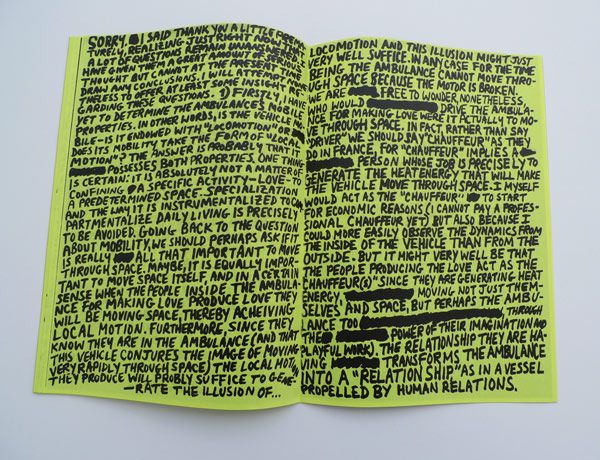 SORRY. I SAID THANK YOU A LITTLE PREMA-
TURELY, REALIZING JUST RIGHT NOW THAT
A LOT OF QUESTIONS REMAIN UNANSWERED. I
HAVE GIVEN THEM A GREAT AMOUNT OF SERIOUS
THOUGHT BUT CANNOT AT THE PRESENT TIME
DRAW ANY CONCLUSIONS. I WILL ATTEMPT NONE-
THELESS TO OFFER AT LEAST SOME INSIGHT RE-
GARDING THESE QUESTIONS. 1) FIRSTLY, I HAVE
YET TO DETERMINE THE AMBULANCE'S MOBILE
PROPERTIES. IN OTHER WORDS, IS THE VEHICLE MO-
BILE–IS IT ENDOWED WITH "LOCOMOTION" OR
DOES ITS MOBILITY TAKE THE FORM OF "LOCAL
MOTION"? THE ANSWER IS PROBABLY THAT IT
POSSESSES BOTH PROPERTIES. ONE THING
IS CERTAIN: IT IS ABSOLUTELY NOT A MATTER OF
CONFINING A SPECIFIC ACTIVITY–LOVE–TO
A PREDETERMINED SPACE. SPECIALIZATION
AND THE WAY IT IS INSTRUMENTALIZED TO COM-
PARTMENTALIZE DAILY LIVING IS PRECISELY
TO BE AVOIDED. GOING BACK TO THE QUESTION
ABOUT MOBILITY, WE SHOULD PERHAPS ASK IF IT
IS REALLY ALL THAT IMPORTANT TO MOVE
THROUGH SPACE. MAYBE, IT IS EQUALLY IMPOR-
TANT TO MOVE SPACE ITSELF AND IN A CERTAIN
SENSE WHEN THE PEOPLE INSIDE THE AMBULA-
NCE FOR MAKING LOVE PRODUCE LOVE THEY
WILL BE MOVING SPACE, THEREBY ACHEIVING
LOCAL MOTION. FURTHERMORE, SINCE THEY
KNOW THEY ARE IN THE AMBULANCE (AND THAT
THIS VEHICLE CONJURES THE IMAGE OF MOVING
VERY RAPIDLY THROUGH SPACE) THE LOCAL MOTION
THEY PRODUCE WILL PROBLY SUFFICE TO GENE-
–RATE THE ILLUSION OF...
LOCOMOTION AND THIS ILLUSION MIGHT JUST
VERY WELL SUFFICE. IN ANY CASE FOR THE TIME
BEING, THE AMBULANCE CANNOT MOVE THRO-
UGH SPACE BECAUSE THE MOTOR IS BROKEN.
WE ARE FREE TO WONDER, NONETHELESS,
WHO WOULD DRIVE THE AMBULA-
NCE FOR MAKING LOVE WERE IT ACTUALLY TO MO-
VE THROUGH SPACE. IN FACT, RATHER THAN SAY
"DRIVER" WE SHOULD PAY "CHAUFFEUR" AS THEY
DO IN FRANCE, FOR "CHAUFFEUR" IMPLIES A
PERSON WHOSE JOB IS PRECISELY TO
GENERATE THE HEAT ENERGY THAT WILL MAKE
THE VEHICLE MOVE THROUGH SPACE. I MYSELF
WOULD ACT AS THE "CHAUFFEUR" TO START
FOR ECONOMIC REASONS (I CANNOT PAY A PROFES-
SIONAL CHAUFFEUR YET) BUT ALSO BECAUSE I
COULD MORE EASILY OBSERVE THE DYNAMICS FROM
THE INSIDE OF THE VEHICLE THAN FROM THE
OUTSIDE. BUT IT MIGHT VERY WELL BE THAT
THE PEOPLE PRODUCING THE LOVE ACT AS THE
CHAUFFEUR(S) SINCE THEY ARE GENERATING HEAT
ENERGY, MOVING NOT JUST THEM-
SELVES AND SPACE, BUT PERHAPS THE AMBU-
LANCE TOO THROUGH
THE POWER OF THEIR IMAGINATION AND
PLAYFUL WORK). THE RELATIONSHIP THEY ARE HA-
VING TRANSFORMS THE AMBULANCE
INTO A "RELATION SHIP" AS IN A VESSEL
PROPELLED BY HUMAN RELATIONS.